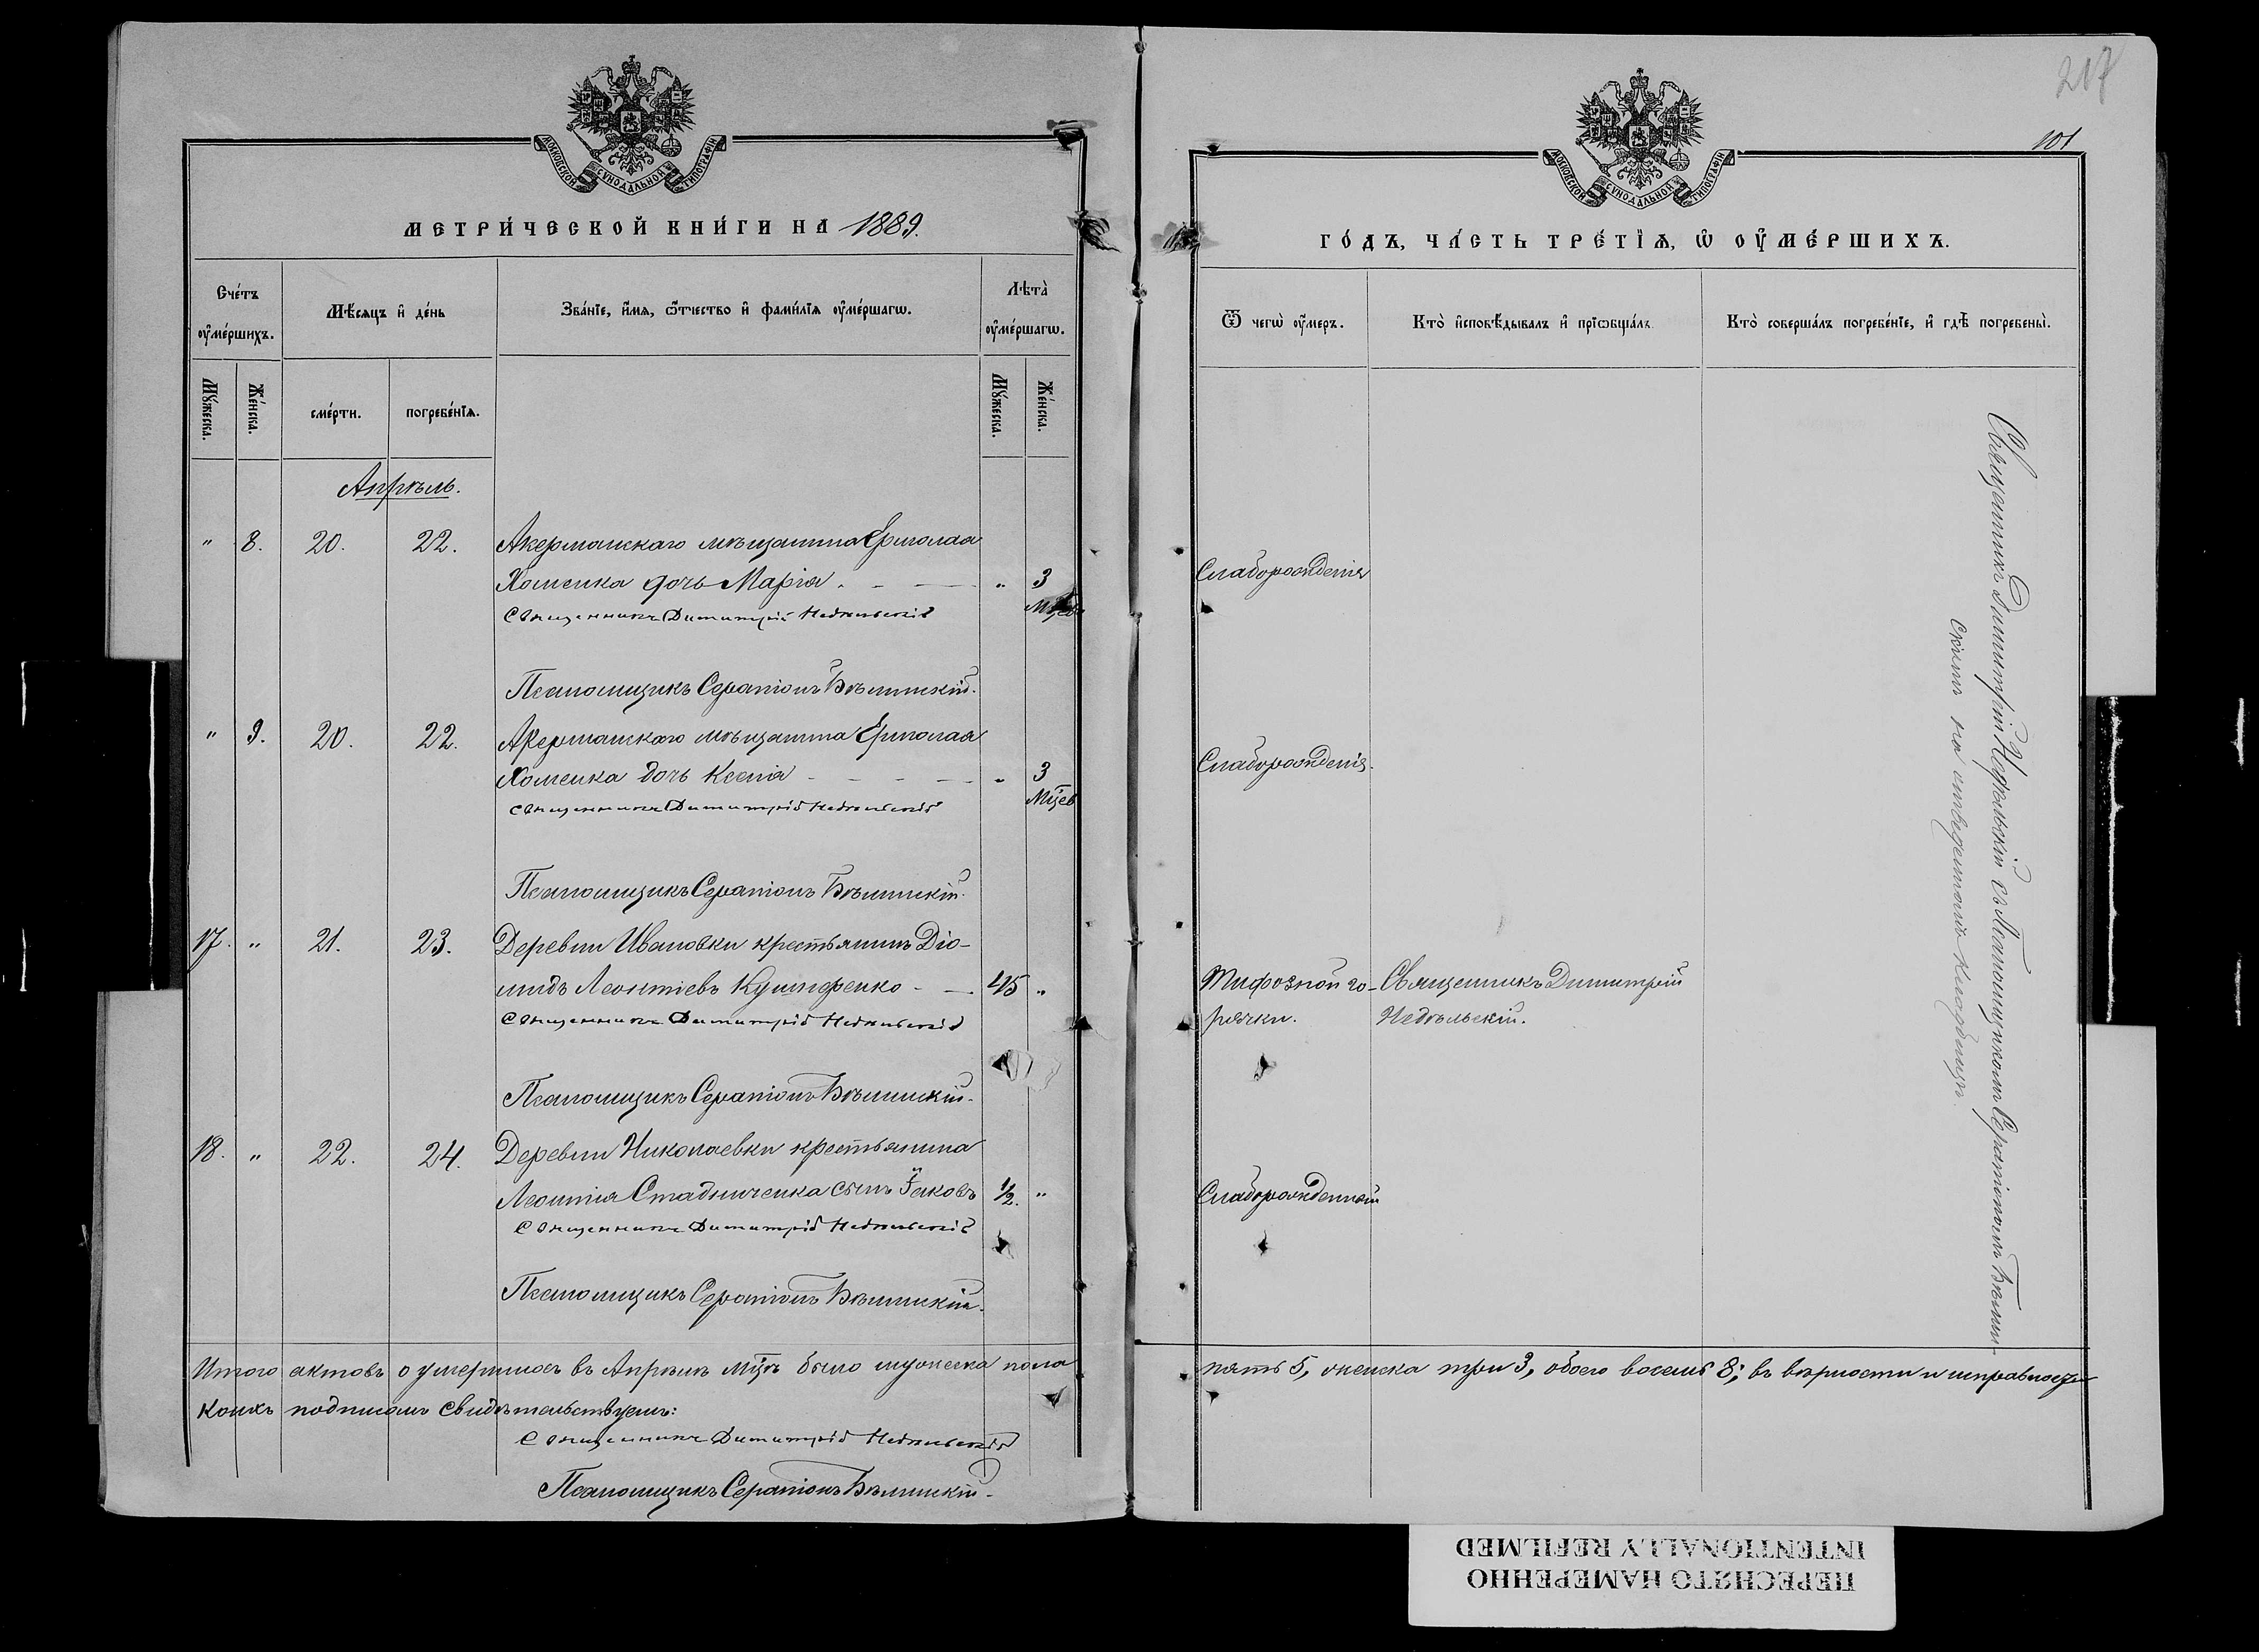 217
101
МОСКОВСКОЙ СУНОДАЛЬНОЙ ТИПОГРАФІИ
МЕТРИ́ЧЕСКОЙ КНИ́ГИ НА 1889.
Сче́тъ ᲂу҆ме́ршихъ.
Мѣ́сяцъ и҆ де́нь
Зва́нїе, и҆́мѧ, ѻ҆́тчество и҆ фами́лїѧ ᲂу҆ме́ршагѡ.
Лѣта̀ ᲂу҆ме́ршагѡ.
Мꙋ́жеска.
Же́нска.
сме́рти.
погребе́нїѧ.
Мꙋ́жеска.
Же́нска.
Апрѣль.
" 8. 20. 22. Акерманскаго мѣщанина Ермолая
Хоменка дочь Марія . - — " 3
Мцев
Священникъ Димитрій Недѣльскій
Псаломщикъ Серапіонъ Бѣлинскій.
" 9. 20. 22. Акерманскаго мѣщанина Ермолая
Хоменка дочь Ксенія - - - — " 3
Мцев
Священникъ Димитрій Недѣльскій
Псаломщикъ Серапіонъ Бѣлинскій.
17. " 21. 23. Деревни Ивановки крестьянинъ Діо-
мидъ Леонтіевъ - — 45 "
Священникъ Димитрій Недѣльскій
Псаломщикъ Серапіонъ Бѣлинскій.
18. " 22. 24. Деревни Николаевки крестьянина
Леонтія Стадниченка сынъ Іаковъ ½. "
Священникъ Димитрій Недѣльскій
Псаломщикъ Серапіонъ Бѣлинскій.
Итого актовъ о умершихъ въ Апрѣлѣ мцѣ было мужеска пола
коихъ подписомъ свидѣтельствуемъ:
Священникъ Димитрій Недѣльскій
Псаломщикъ Серапіонъ Бѣлинскій.
МОСКОВСКОЙ СУНОДАЛЬНОЙ ТИПОГРАФІИ
ГО́ДЪ, ЧА́СТЬ ТРЕ́ТЇѦ, Ѡ҆ ОУ҆МЕ́РШИХЪ.
Ѿ чегѡ̀ ᲂу҆́меръ.
Кто̀ и҆сповѣ́дывалъ и҆ прїѡбща́лъ.
Кто̀ соверша́лъ погребе́нїе, и҆ гдѣ̀ погребены̀.
Слаборожденія
Слаборожденія.
Тифозной го-
рячки.
Священникъ Димитрій
Недѣльскій.
Слаборожденный
Священникъ Димитрій Недѣльскій съ Псаломщикомъ Серапіономъ Бѣлин-
скимъ на отведенномъ кладбищѣ.
пять 5, женска три 3, обоего восемь 8; въ вѣрности и исправности
ПЕРЕСНЯТО НАМЕРЕННО
INTENTIONALLY REFILMED